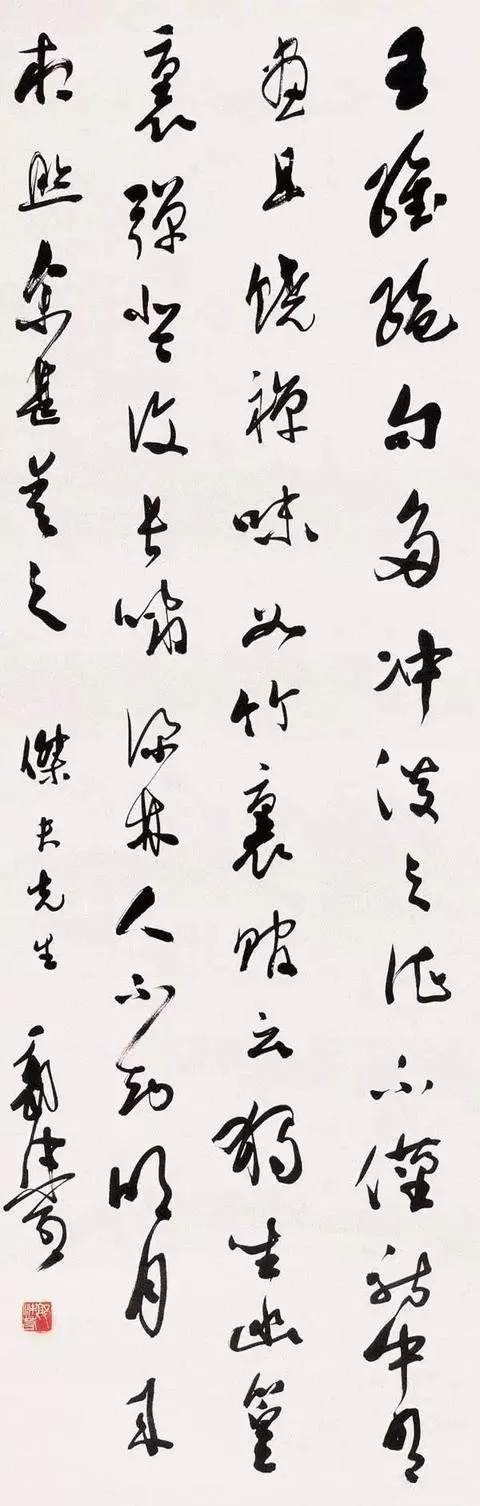 王維絕句多沖淡之作不僅詩中有
畫且饒禪味如竹裏館云獨坐幽篁
裏彈琴復長嘯深林人不知明月來
相照余甚愛之 傑夫先生 郭沫若